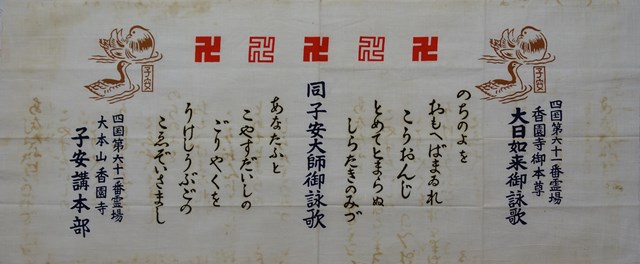 子安
四国第六十一番霊場
香園寺御本尊
大日如来御詠歌
のちのよを
おもへばまゐれ
こうおんじ
とめてとまらぬ
しらたきのみづ
同子安大師御詠歌
あなたふと
こやすだいしの
ごりやくを
うけしうぶごの
こゑぞいさまし
四国第六十一番霊場
大本山香園寺
子安講本部
子安